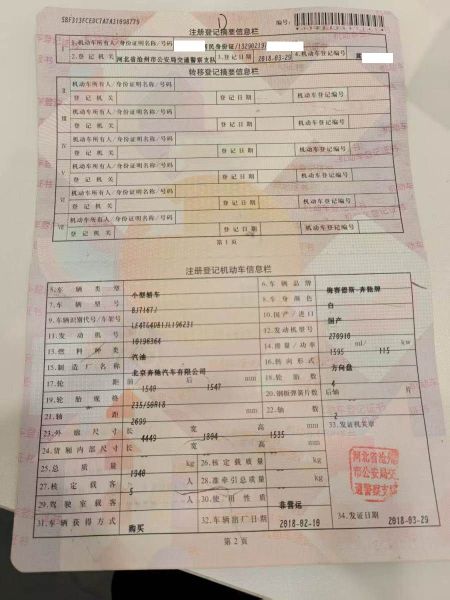 SBF313FCEDC7A7A31098779
注册登记摘要信息栏
编号:
1.机动车所有人/身份证明名称/号码 居民身份证/13290219
2.登记机关 河北省沧州市公安局交通警察支队 3.登记日期 2018-03-29 4.机动车登记编号
转移登记摘要信息栏
Ⅱ 机动车所有人/身份证明名称/号码
登记机关 登记日期 机动车登记编号
Ⅲ 机动车所有人/身份证明名称/号码
登记机关 登记日期 机动车登记编号
Ⅳ 机动车所有人/身份证明名称/号码
登记机关 登记日期 机动车登记编号
Ⅴ 机动车所有人/身份证明名称/号码
登记机关 登记日期 机动车登记编号
Ⅵ 机动车所有人/身份证明名称/号码
登记机关 登记日期 机动车登记编号
Ⅶ 机动车所有人/身份证明名称/号码
登记机关 登记日期 机动车登记编号
第1页
注册登记机动车信息栏
5.车辆类型 小型轿车 6.车辆品牌 梅赛德斯-奔驰牌
7.车辆型号 8.车身颜色 白
9.车辆识别代号/车架号 10.国产/进口 国产
11.发动机号 12.发动机型号 270910
13.燃料种类 汽油 14.排量/功率 1595 ml/ 115 kw
15.制造厂名称 北京奔驰汽车有限公司 16.转向形式 方向盘
17.轮距 前 1540 后 1547 mm 18.轮胎数 4
19.轮胎规格 235/50R18 20.钢板弹簧片数 后轴 片
21.轴距 2699 mm 22.轴数 2
23.外廓尺寸 长 4449 宽 1804 高 1535 mm 33.发证机关章
24.货厢内部尺寸 长 宽 高 mm
25.总质量 1940 kg 26.核定载质量 kg
27.核定载客 5 人 28.准牵引总质量 kg
29.驾驶室载客 人 30.使用性质 非营运
31.车辆获得方式 购买 32.车辆出厂日期 2018-02-10 34.发证日期 2018-03-29
河北省沧州
市公安局交
通警察支队
第2页